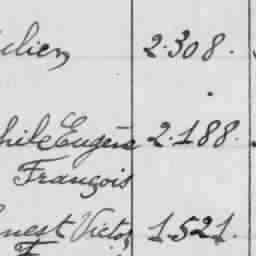 ulien 2.308.
hile Eugène 2.188.
François
nest Victor 1.521.